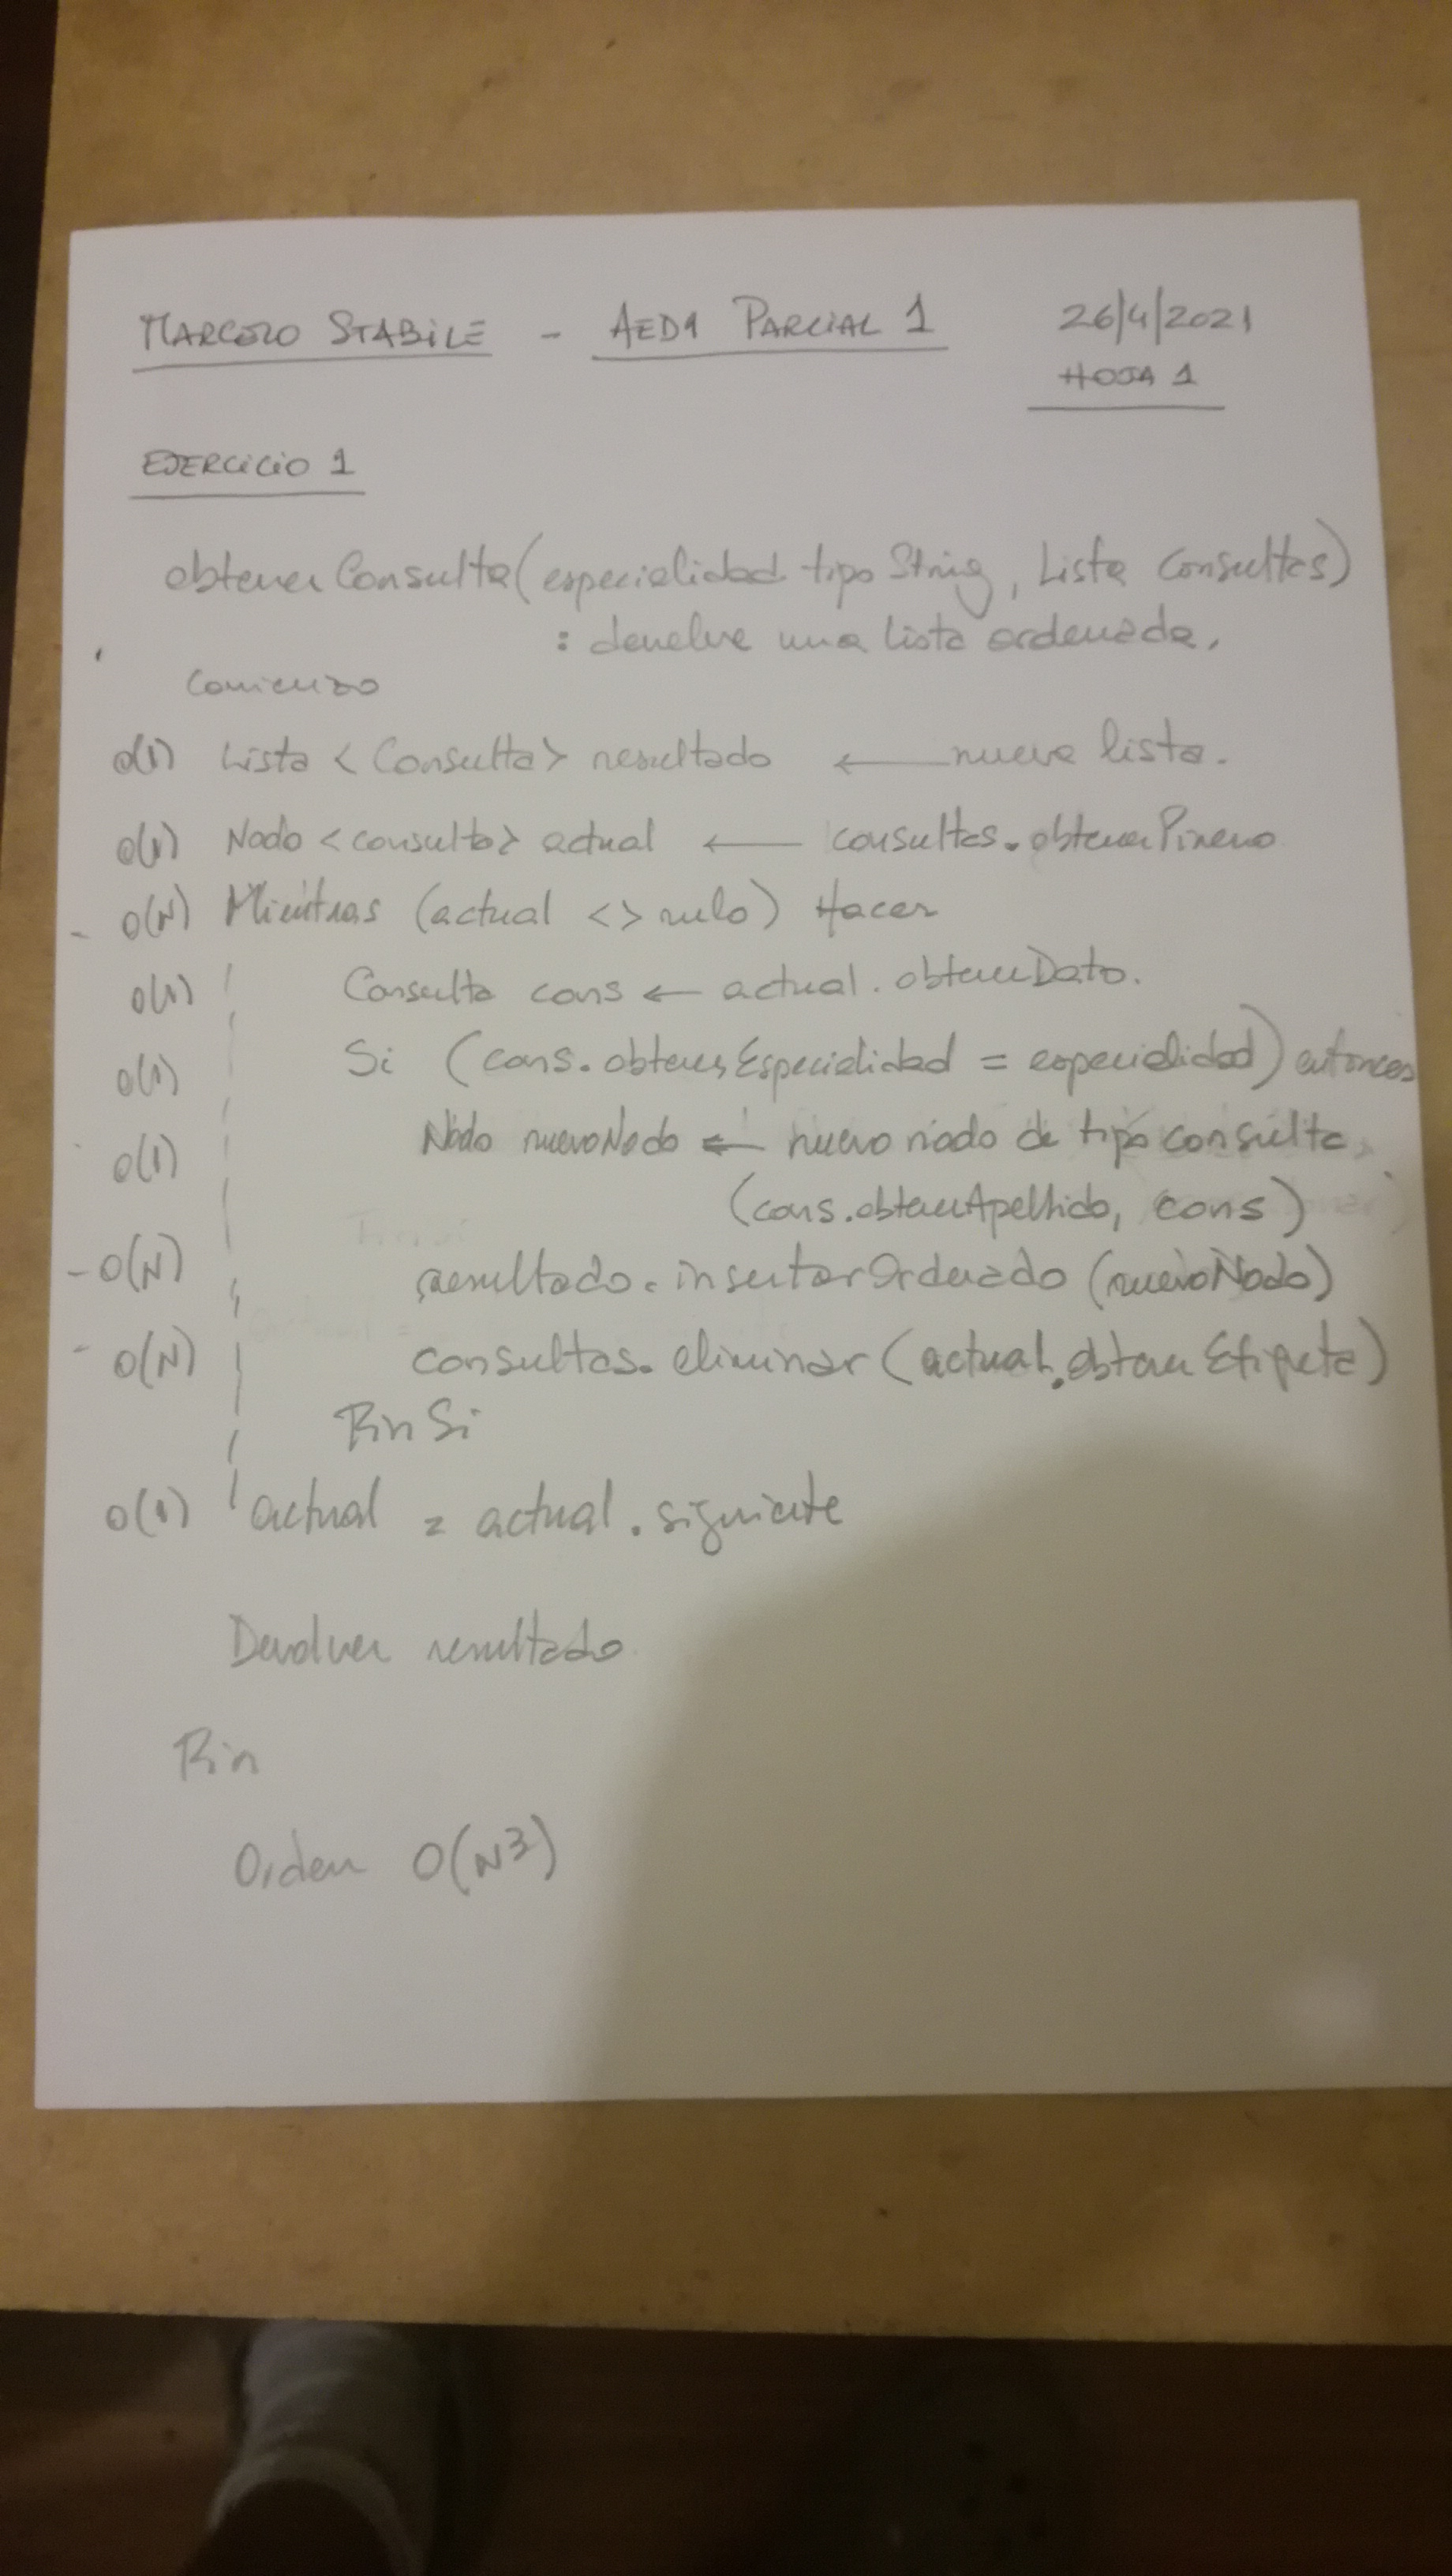 MARCELO STABILE - AED1 PARCIAL 1 26/4/2021
HOJA 1
EJERCICIO 1
obtenerConsulta(especialidad tipo String, Lista consultas)
: devuelve una lista ordenada.
Comienzo
O(1) Lista <Consulta> resultado ← nueva lista.
O(1) Nodo <consulta> actual ← consultas.obtenerPimero
- O(N) Mientras (actual <> nulo) Hacer
O(1) Consulta cons ← actual.obtenerDato.
O(1) Si (cons.obtenerEspecialidad = especialidad) entonces
O(1) Nodo nuevoNodo ← nuevo nodo de tipo consulta
(cons.obtenerApellido, cons)
- O(N) resultado.insertarOrdenado (nuevoNodo)
- O(N) consultas.eliminar (actual.obtenerEtiqueta)
Fin Si
O(1) actual = actual.siguiente
Devolver resultado
Fin
Orden O(N³)